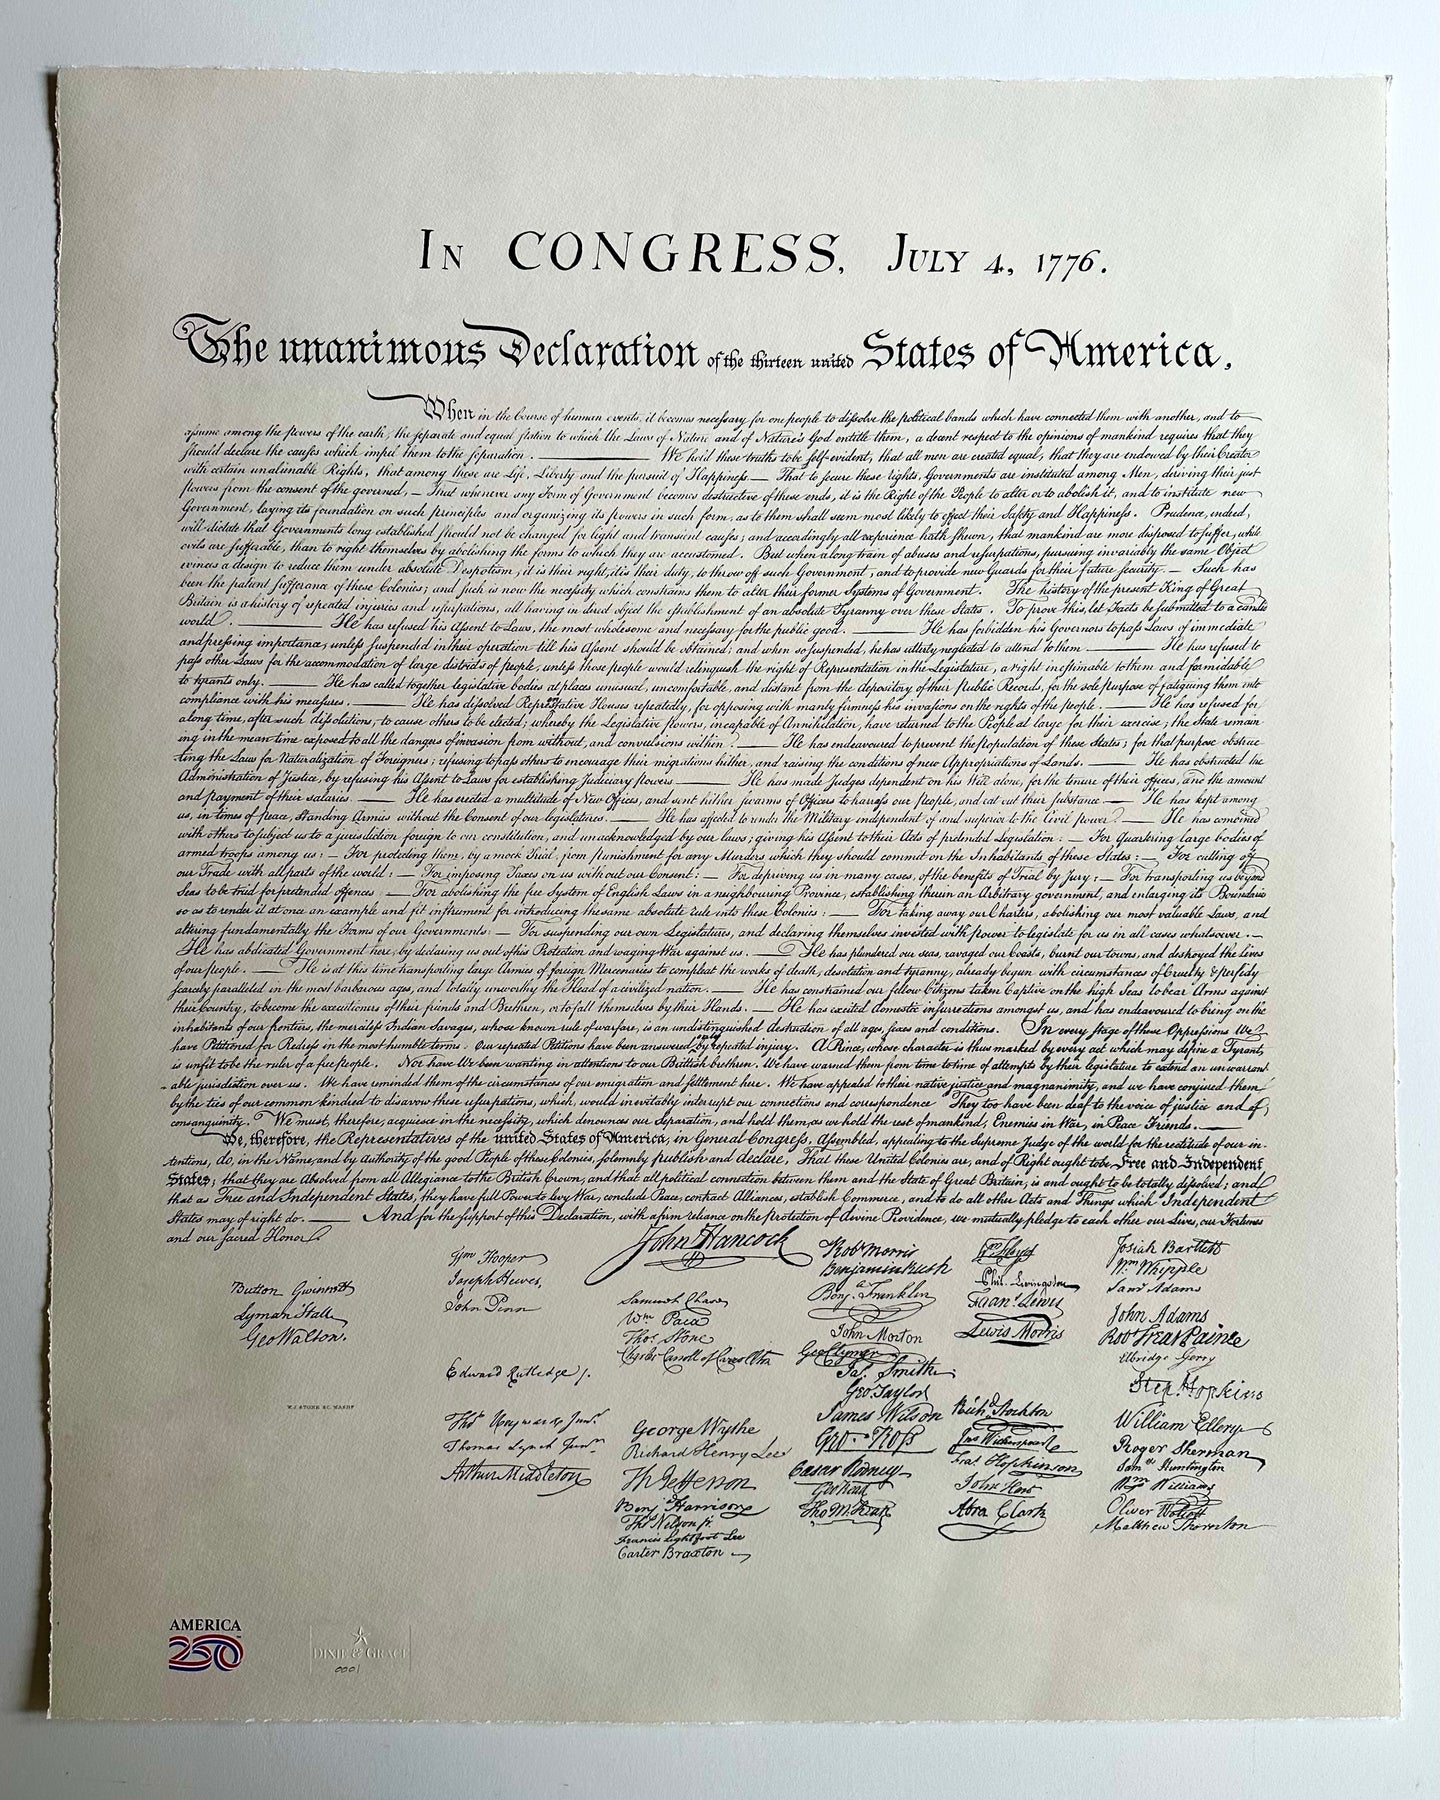 In CONGRESS, July 4, 1776.
The unanimous Declaration of the thirteen united States of America,
When in the Course of human events, it becomes necessary for one people to dissolve the political bands which have connected them with another, and to
assume among the powers of the earth, the separate and equal station to which the Laws of Nature and of Nature's God entitle them, a decent respect to the opinions of mankind requires that they
should declare the causes which impel them to the separation. — We hold these truths to be self-evident, that all men are created equal, that they are endowed by their Creator
with certain unalienable Rights, that among these are Life, Liberty and the pursuit of Happiness.— That to secure these rights, Governments are instituted among Men, deriving their just
powers from the consent of the governed,— That whenever any Form of Government becomes destructive of these ends, it is the Right of the People to alter or to abolish it, and to institute new
Government, laying its foundation on such principles and organizing its powers in such form, as to them shall seem most likely to effect their Safety and Happiness. Prudence, indeed,
will dictate that Governments long established should not be changed for light and transient causes; and accordingly all experience hath shewn, that mankind are more disposed to suffer, while
evils are sufferable, than to right themselves by abolishing the forms to which they are accustomed. But when a long train of abuses and usurpations, pursuing invariably the same Object
evinces a design to reduce them under absolute Despotism, it is their right, it is their duty, to throw off such Government, and to provide new Guards for their future security.— Such has
been the patient sufferance of these Colonies; and such is now the necessity which constrains them to alter their former Systems of Government. The history of the present King of Great
Britain is a history of repeated injuries and usurpations, all having in direct object the establishment of an absolute Tyranny over these States. To prove this, let Facts be submitted to a candid
world. — He has refused his Assent to Laws, the most wholesome and necessary for the public good. — He has forbidden his Governors to pass Laws of immediate
and pressing importance, unless suspended in their operation till his Assent should be obtained; and when so suspended, he has utterly neglected to attend to them — He has refused to
pass other Laws for the accommodation of large districts of people, unless those people would relinquish the right of Representation in the Legislature, a right inestimable to them and formidable
to tyrants only. — He has called together legislative bodies at places unusual, uncomfortable, and distant from the depository of their Public Records, for the sole purpose of fatiguing them into
compliance with his measures. — He has dissolved Representative Houses repeatedly, for opposing with manly firmness his invasions on the rights of the people. — He has refused for
a long time, after such dissolutions, to cause others to be elected; whereby the Legislative powers, incapable of Annihilation, have returned to the People at large for their exercise; the State remain
ing in the mean time exposed to all the dangers of invasion from without, and convulsions within. — He has endeavoured to prevent the population of these States; for that purpose obstruc-
ting the Laws for Naturalization of Foreigners; refusing to pass others to encourage their migrations hither, and raising the conditions of new Appropriations of Lands. — He has obstructed the
Administration of Justice, by refusing his Assent to Laws for establishing Judiciary powers — He has made Judges dependent on his Will alone, for the tenure of their offices, and the amount
and payment of their salaries. — He has erected a multitude of New Offices, and sent hither swarms of Officers to harrass our people, and eat out their substance — He has kept among
us, in times of peace, Standing Armies without the Consent of our legislatures. — He has affected to render the Military independent of and superior to the Civil power. — He has combined
with others to subject us to a jurisdiction foreign to our constitution, and unacknowledged by our laws; giving his Assent to their Acts of pretended Legislation: — For Quartering large bodies of
armed troops among us: — For protecting them, by a mock Trial, from punishment for any Murders which they should commit on the Inhabitants of these States: — For cutting off
our Trade with all parts of the world: — For imposing Taxes on us without our Consent: — For depriving us in many cases, of the benefits of Trial by Jury: — For transporting us beyond
Seas to be tried for pretended offences — For abolishing the free System of English Laws in a neighbouring Province, establishing therein an Arbitrary government, and enlarging its Boundaries
so as to render it at once an example and fit instrument for introducing the same absolute rule into these Colonies: — For taking away our Charters, abolishing our most valuable Laws, and
altering fundamentally the Forms of our Governments: — For suspending our own Legislatures, and declaring themselves invested with power to legislate for us in all cases whatsoever. —
He has abdicated Government here, by declaring us out of his Protection and waging War against us. — He has plundered our seas, ravaged our Coasts, burnt our towns, and destroyed the lives
of our people. — He is at this time transporting large Armies of foreign Mercenaries to compleat the works of death, desolation and tyranny, already begun with circumstances of Cruelty & perfidy
scarcely paralleled in the most barbarous ages, and totally unworthy the Head of a civilized nation. — He has constrained our fellow Citizens taken Captive on the high Seas to bear Arms against
their Country, to become the executioners of their friends and Brethren, or to fall themselves by their Hands. — He has excited domestic insurrections amongst us, and has endeavoured to bring on the
inhabitants of our frontiers, the merciless Indian Savages, whose known rule of warfare, is an undistinguished destruction of all ages, sexes and conditions. In every stage of these Oppressions We
have Petitioned for Redress in the most humble terms: Our repeated Petitions have been answered only by repeated injury. A Prince, whose character is thus marked by every act which may define a Tyrant,
is unfit to be the ruler of a free people. Nor have We been wanting in attentions to our Brittish brethren. We have warned them from time to time of attempts by their legislature to extend an unwarrant-
able jurisdiction over us. We have reminded them of the circumstances of our emigration and settlement here. We have appealed to their native justice and magnanimity, and we have conjured them
by the ties of our common kindred to disavow these usurpations, which, would inevitably interrupt our connections and correspondence They too have been deaf to the voice of justice and of
consanguinity. We must, therefore, acquiesce in the necessity, which denounces our Separation, and hold them, as we hold the rest of mankind, Enemies in War, in Peace Friends. —
We, therefore, the Representatives of the united States of America, in General Congress, Assembled, appealing to the Supreme Judge of the world for the rectitude of our in-
tentions, do, in the Name, and by Authority of the good People of these Colonies, solemnly publish and declare, That these United Colonies are, and of Right ought to be Free and Independent
States; that they are Absolved from all Allegiance to the British Crown, and that all political connection between them and the State of Great Britain, is and ought to be totally dissolved; and
that as Free and Independent States, they have full Power to levy War, conclude Peace, contract Alliances, establish Commerce, and to do all other Acts and Things which Independent
States may of right do. — And for the support of this Declaration, with a firm reliance on the protection of divine Providence, we mutually pledge to each other our Lives, our Fortunes
and our sacred Honor.
Button Gwinnett
Lyman Hall
Geo Walton.
Wm Hooper
Joseph Hewes,
John Penn
Edward Rutledge /.
Thos Heyward Junr.
Thomas Lynch Junr.
Arthur Middleton
John Hancock
Samuel Chase
Wm Paca
Thos Stone
Charles Carroll of Carrollton
George Wythe
Richard Henry Lee
Th Jefferson
Benj Harrison
Thos Nelson jr.
Francis Lightfoot Lee
Carter Braxton
Robt Morris
Benjamin Rush
Benj. Franklin
John Morton
Geo Clymer
Jas. Smith
Geo. Taylor
James Wilson
Geo. Ross
Caesar Rodney
Geo Read
Tho M:Kean
Wm Floyd
Phil. Livingston
Frans. Lewis
Lewis Morris
Richd. Stockton
Jno Witherspoon
Fras. Hopkinson
John Hart
Abra Clark
Josiah Bartlett
Wm Whipple
Saml Adams
John Adams
Robt Treat Paine
Elbridge Gerry
Step. Hopkins
William Ellery
Roger Sherman
Samel Huntington
Wm Williams
Oliver Wolcott
Matthew Thornton
W.J. STONE SC. WASHN
AMERICA
250
DIXIE & GRACE
0001